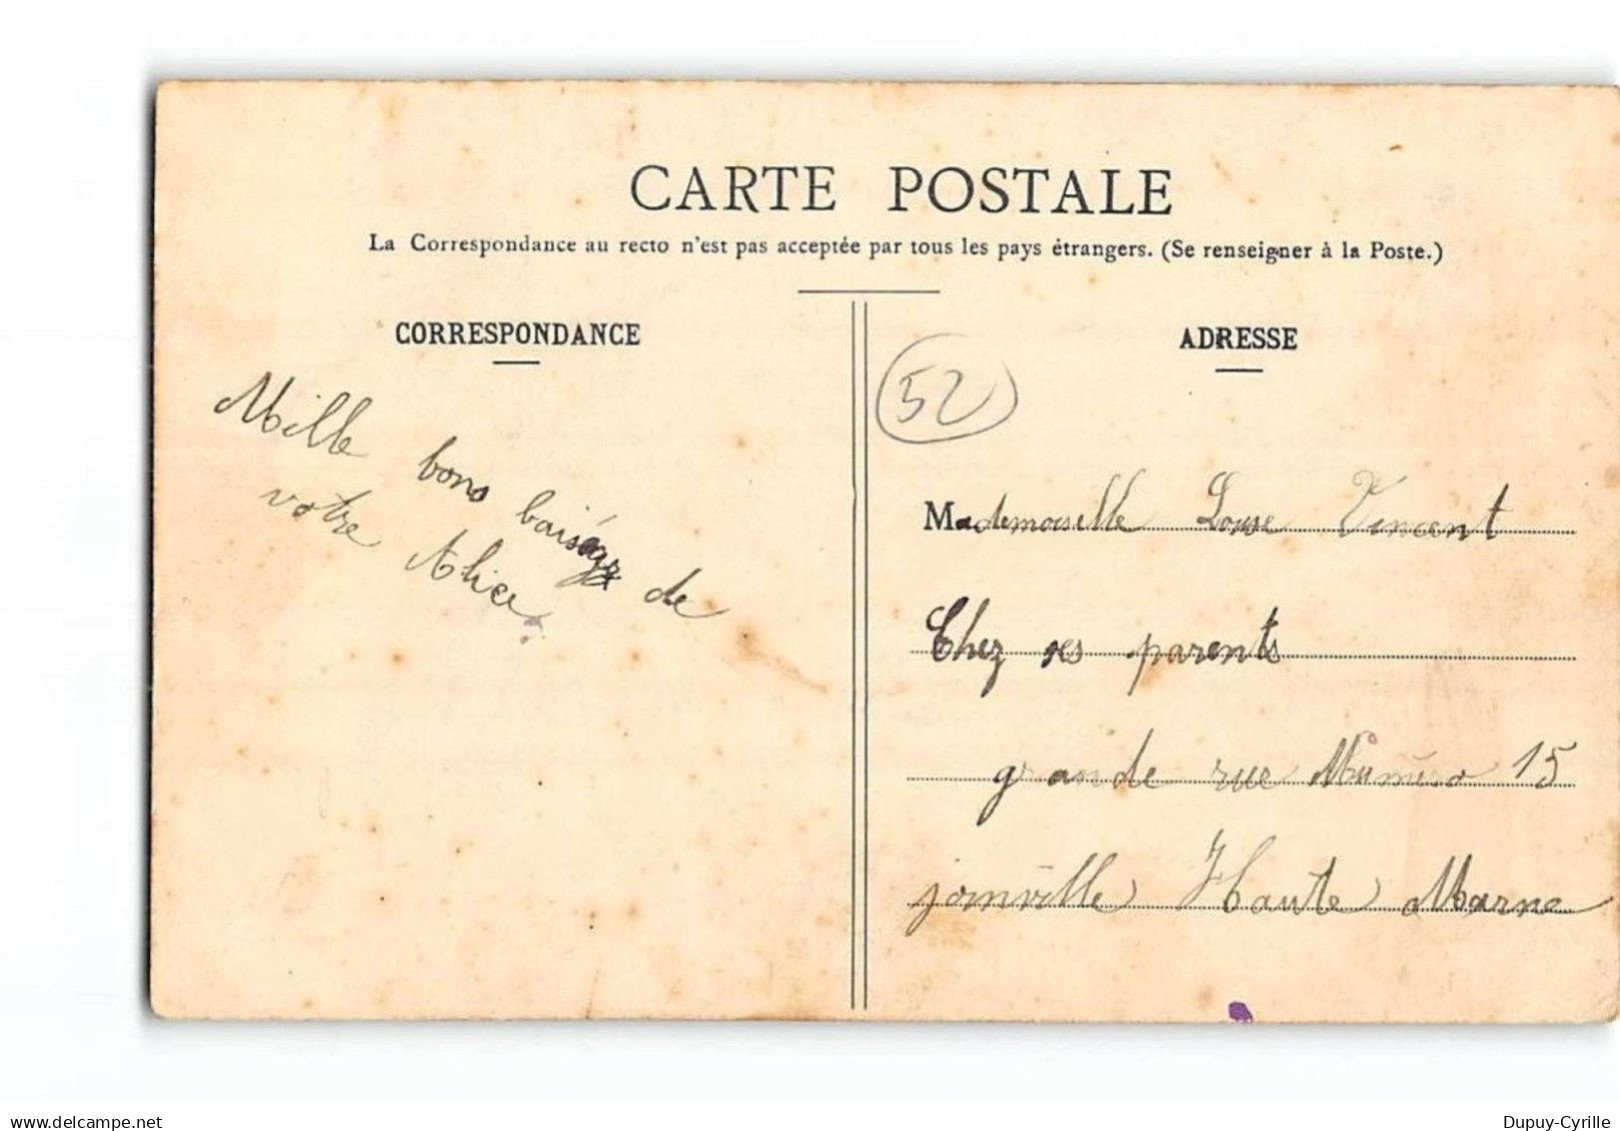 CARTE POSTALE
La Correspondance au recto n'est pas acceptée par tous les pays étrangers. (Se renseigner à la Poste.)
CORRESPONDANCE
Mille bons baisers de
votre Alice.
ADRESSE
52
Mademoiselle Louise Vincent
Chez ses parents
grande rue Numéro 15
joinville Haute Marne
delcampe.net
Dupuy-Cyrille